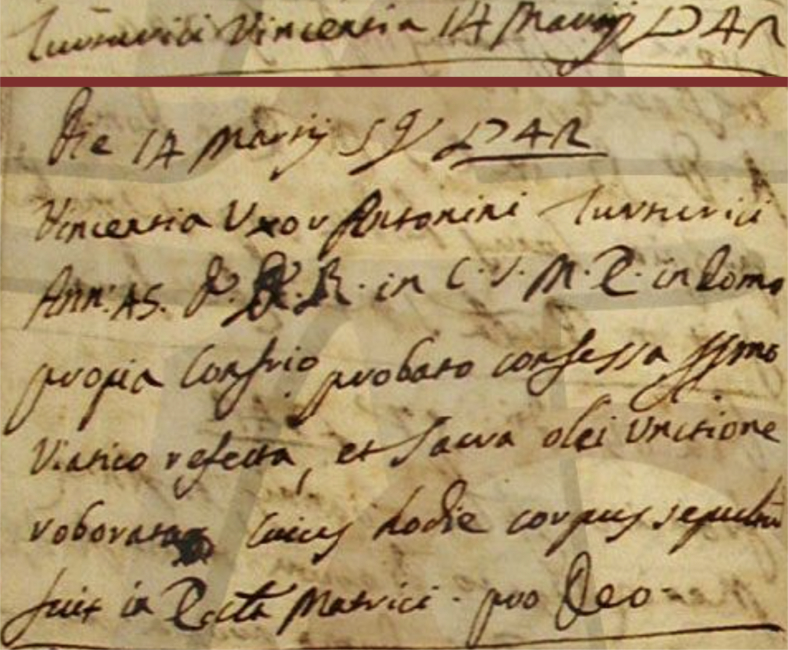 Vincentia 14 Martij
Die 14 Martij
Vincentia Uxor Antonini
Ann. 45. in C. S. M. E. in domo
propria Confrio probato confessa ssmo
Viatico refecta, et Sacra olei Unctione
roborata Cuius hodie corpus sepultu
fuit in Eccta Matrici. pro Deo.